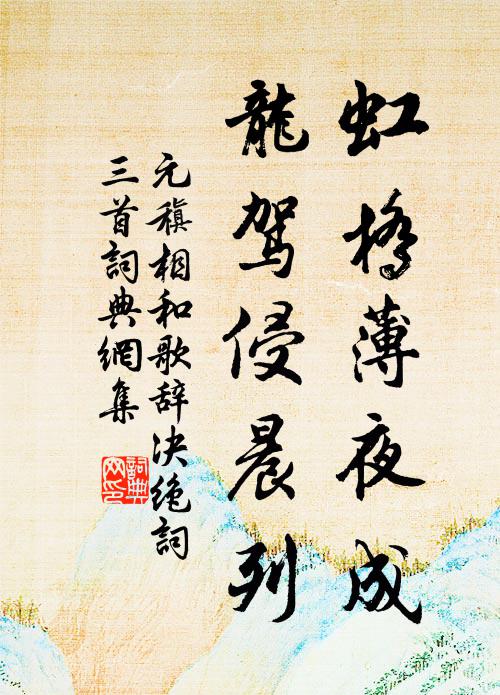 虹橋薄夜成
龍駕侵晨列
元稹相和歌辞决绝詞
三首詞典網集
詞典
网印